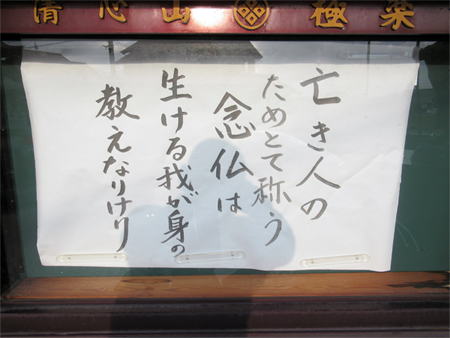 清心山 極楽
亡き人の
ためとて称う
念仏は
生ける我が身の
教えなりけり